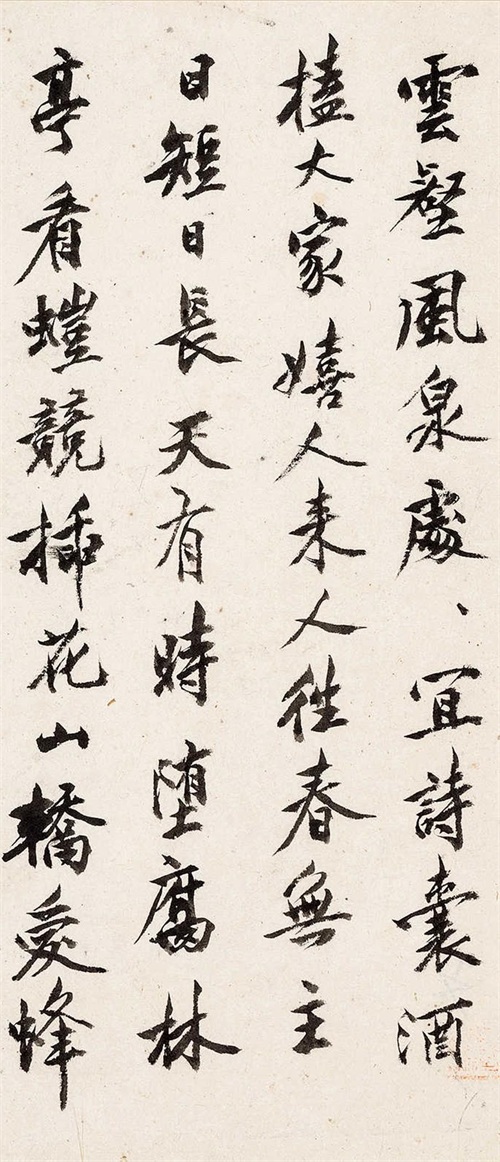 雲壑風泉處、宜詩囊酒
榼大家嬉人来人徃春無主
日短日長天有時堕腐林
亭看螘競插花山轎愛蜂